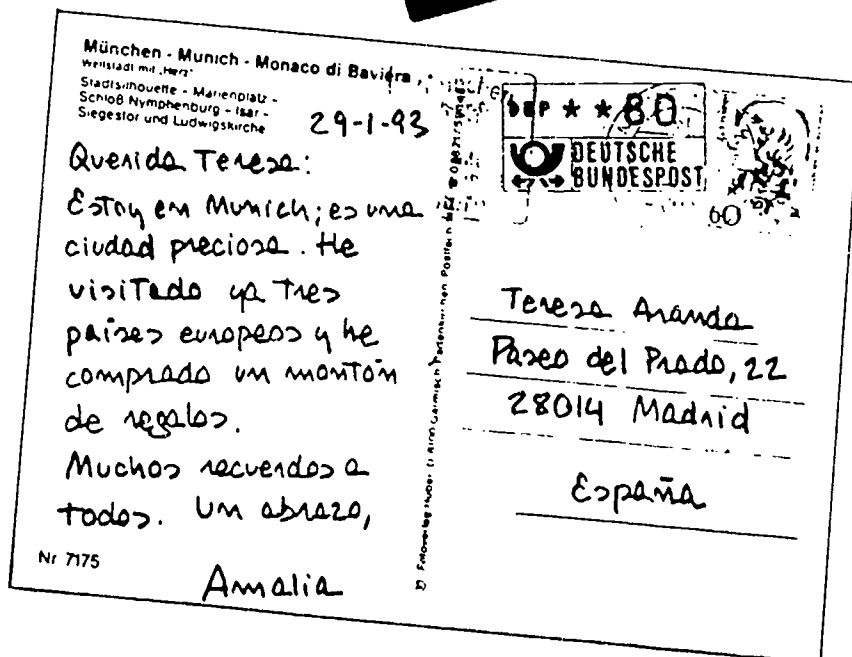 München - Munich - Monaco di Baviera
Weltstadt mit "Herz"
Stadtsilhouette - Marienplatz -
Schloß Nymphenburg - Isar -
Siegestor und Ludwigskirche
29-1-93
Querida Teresa:
Estoy en Munich; es una
ciudad preciosa. He
visitado ya tres
países europeos y he
comprado un montón
de regalos.
Muchos recuerdos a
todos. Un abrazo,
Amalia
Nr 7175
DBP * * 80
DEUTSCHE
BUNDESPOST
60
Teresa Aranda
Paseo del Prado, 22
28014 Madrid
España